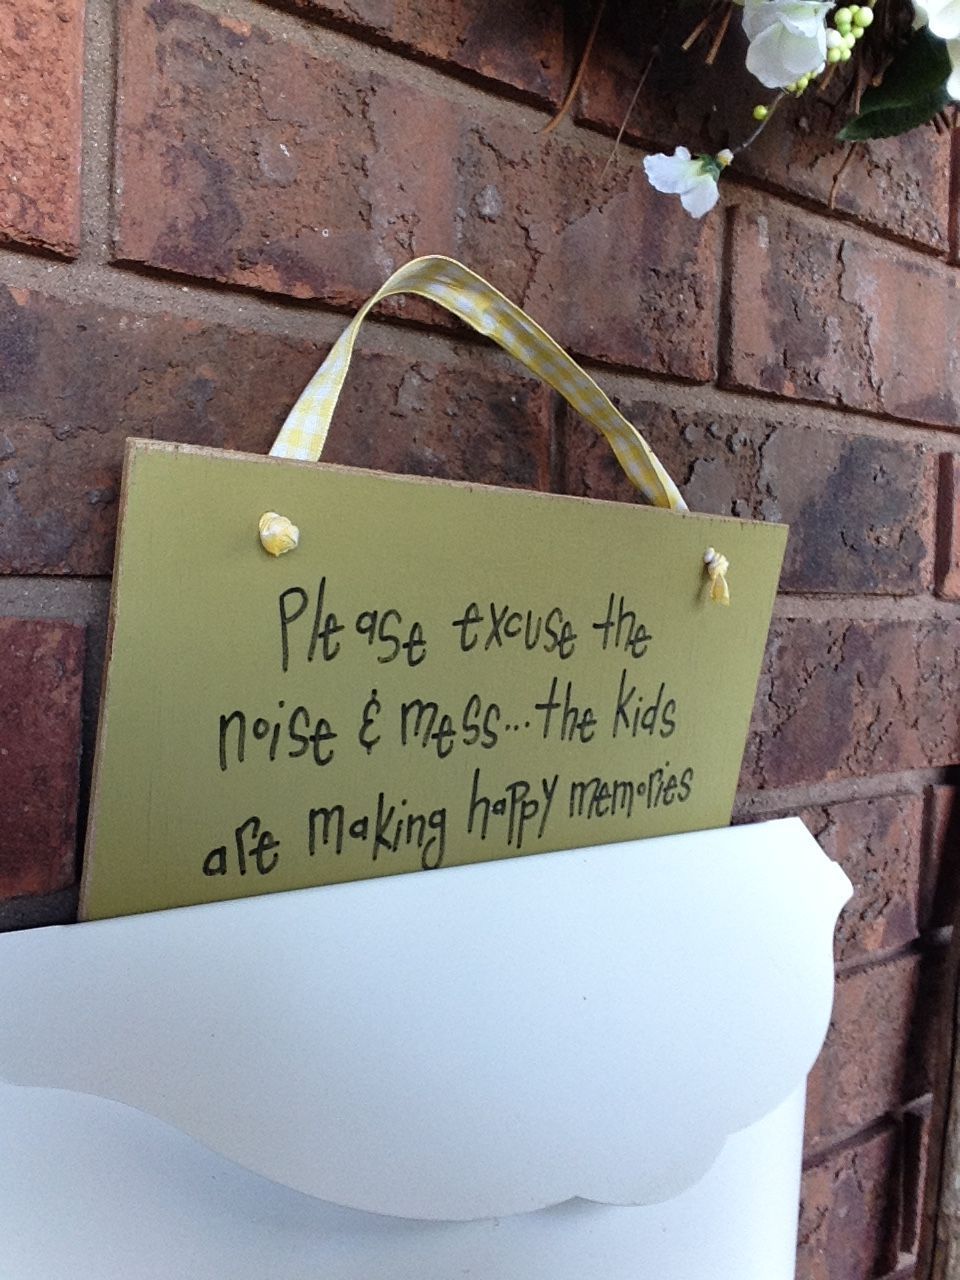 Please excuse the
noise & mess...the kids
are making happy memories